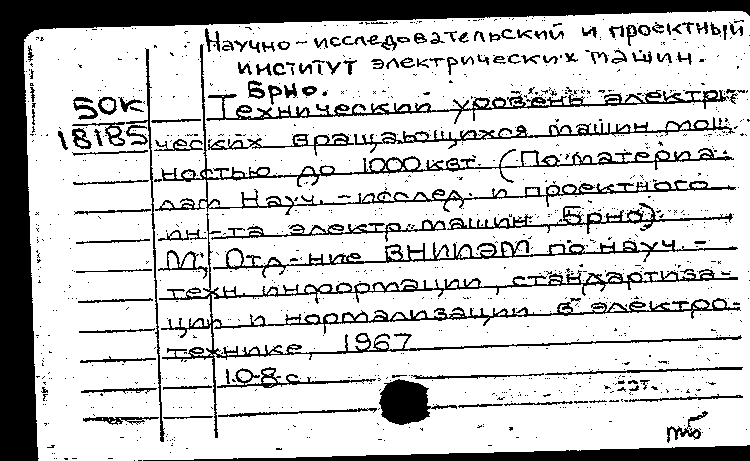 Научно-исследовательский и проектный
институт электрических машин.
Брно.
50К
18185
Технический уровень электри-
ческих вращающихся машин мощ-
ностью до 1000 квт. (По материа-
лам Науч.-исслед. и проектного
ин-та электр. машин, Брно).
М., Отд-ние ВНИИЭМ по науч.-
техн. информации, стандартиза-
ции и нормализации в электро-
технике, 1967
108 с.